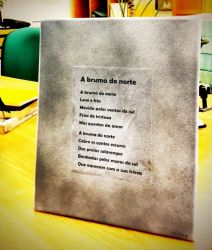 A bruma do norte
A bruma do norte
Leve e fria
Movida pelos ventos do sul
Frias de tristeza
Mas quentes de amor
A bruma do norte
Cobre os cantos escuros
Das praias selvagens
Banhadas pelos mares do sul
Que aquecem com a sua frieza